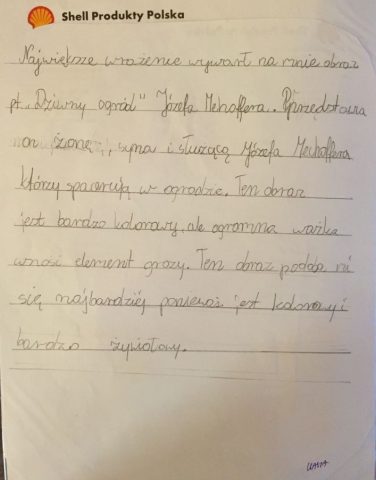 Shell Produkty Polska
Największe wrażenie wywarł na mnie obraz
pt. „Dziwny ogród" Józefa Mehoffera. Przedstawia
on żonę, syna i służącą Józefa Mechoffera
którzy spacerują w ogrodzie. Ten obraz
jest bardzo kolorowy, ale ogromna ważka
wnosi element grozy. Ten obraz podoba mi
się najbardziej ponieważ jest kolorowy i
bardzo żywiołowy.